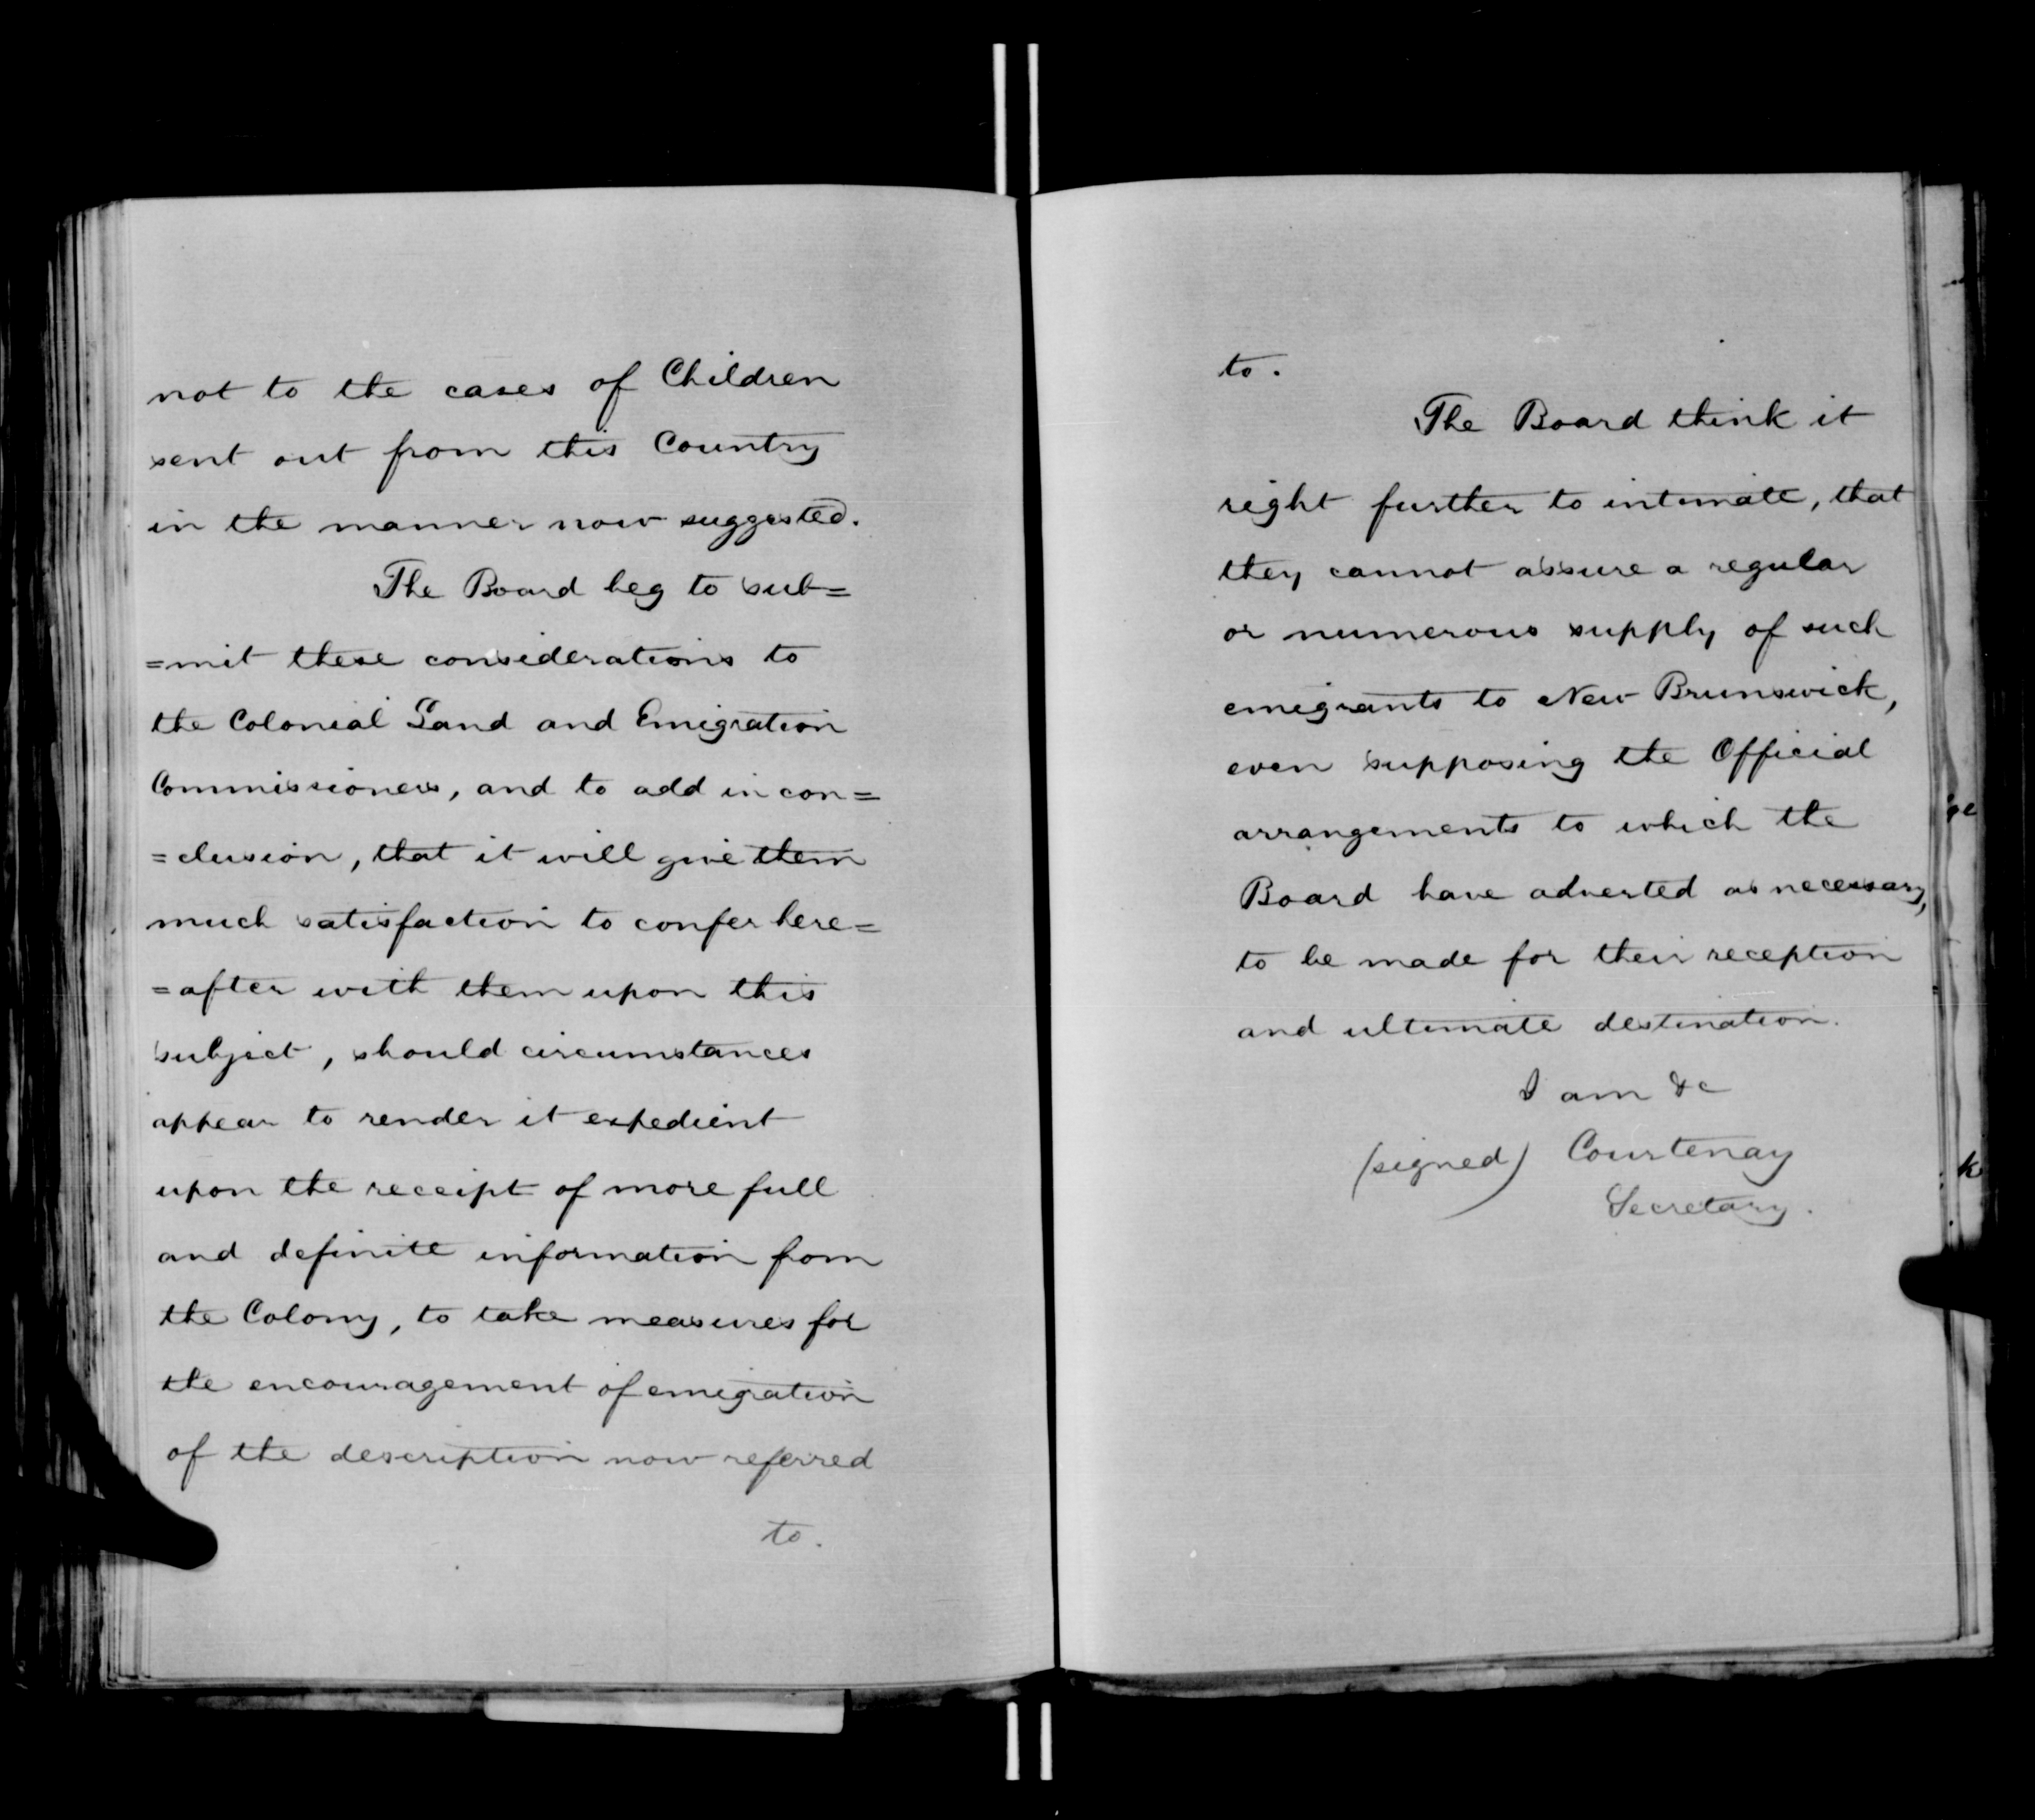 not to the cases of Children
sent out from this Country
in the manner now suggested.
The Board beg to sub=
=mit these considerations to
the Colonial Land and Emigration
Commissioners, and to add in con=
=clusion, that it will give them
much satisfaction to confer here=
=after with them upon this
subject, should circumstances
appear to render it expedient
upon the receipt of more full
and definite information from
the Colony, to take measures for
the encouragement of emigration
of the description now referred
to.
to.
The Board think it
right further to intimate, that
they cannot assure a regular
or numerous supply of such
emigrants to New Brunswick,
even supposing the Official
arrangements to which the
Board have adverted as necessary,
to be made for their reception
and ultimate destination.
I am &c
(signed) Courtenay
Secretary.